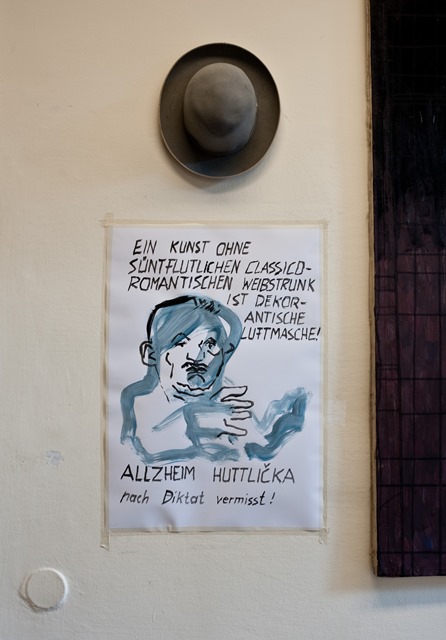 EIN KUNST OHNE
SÜNTFLUTLICHEN CLASSICO-
ROMANTISCHEN WEIBSTRUNK
IST DEKOR-
ANTISCHE
LUFTMASCHE!
ALLZHEIM HUTTLIČKA
nach Diktat vermisst!